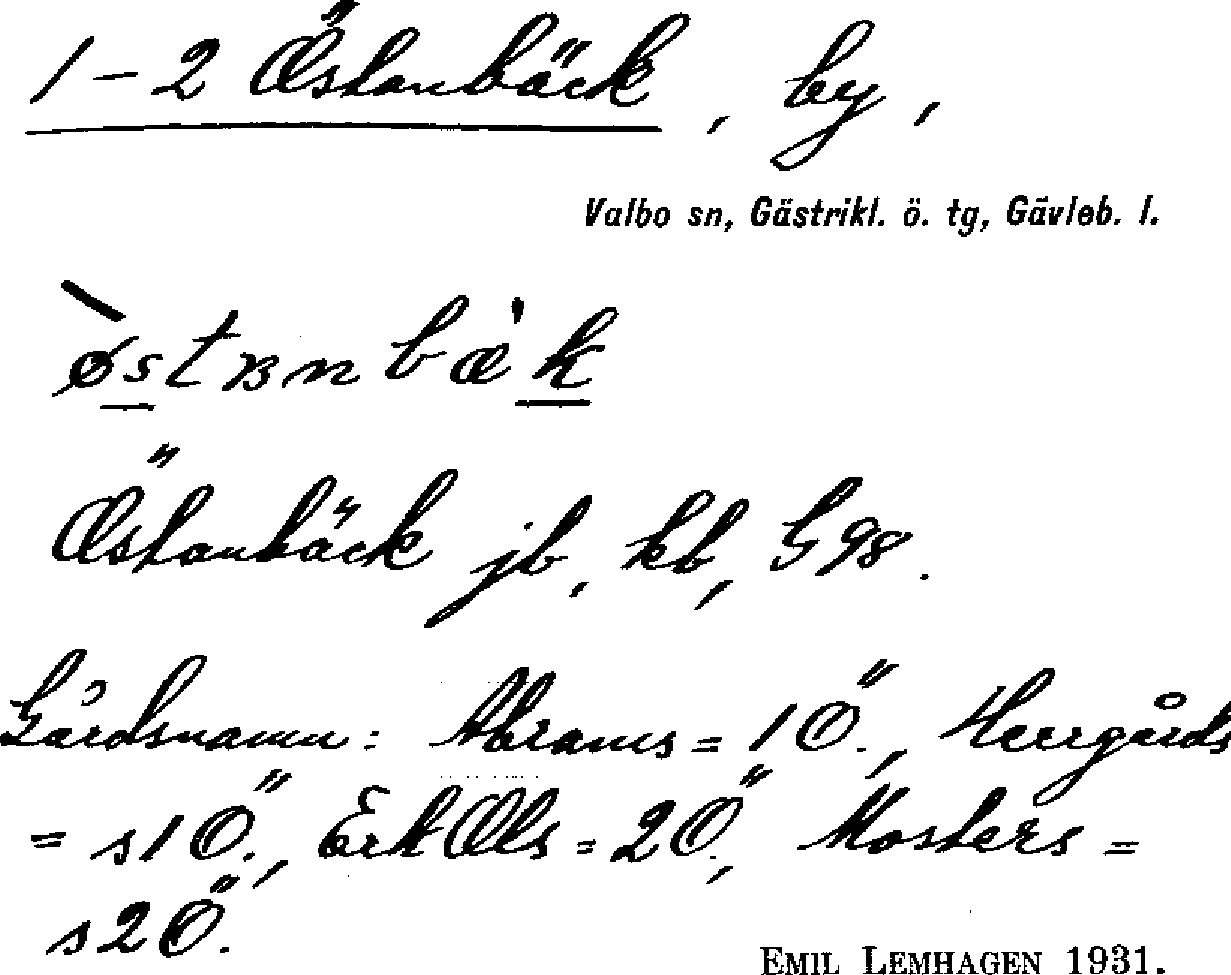 1-2 Östanbäck, by,
Valbo sn, Gästrikl. ö. tg, Gävleb. l.
östanbäk
Östanbäck jb, kb, G98.
Gårdsnamn: Abrams = 1Ö., Herrgårds
= s1Ö., Erk Ols = 2Ö., Mosters =
s2Ö.
EMIL LEMHAGEN 1931.